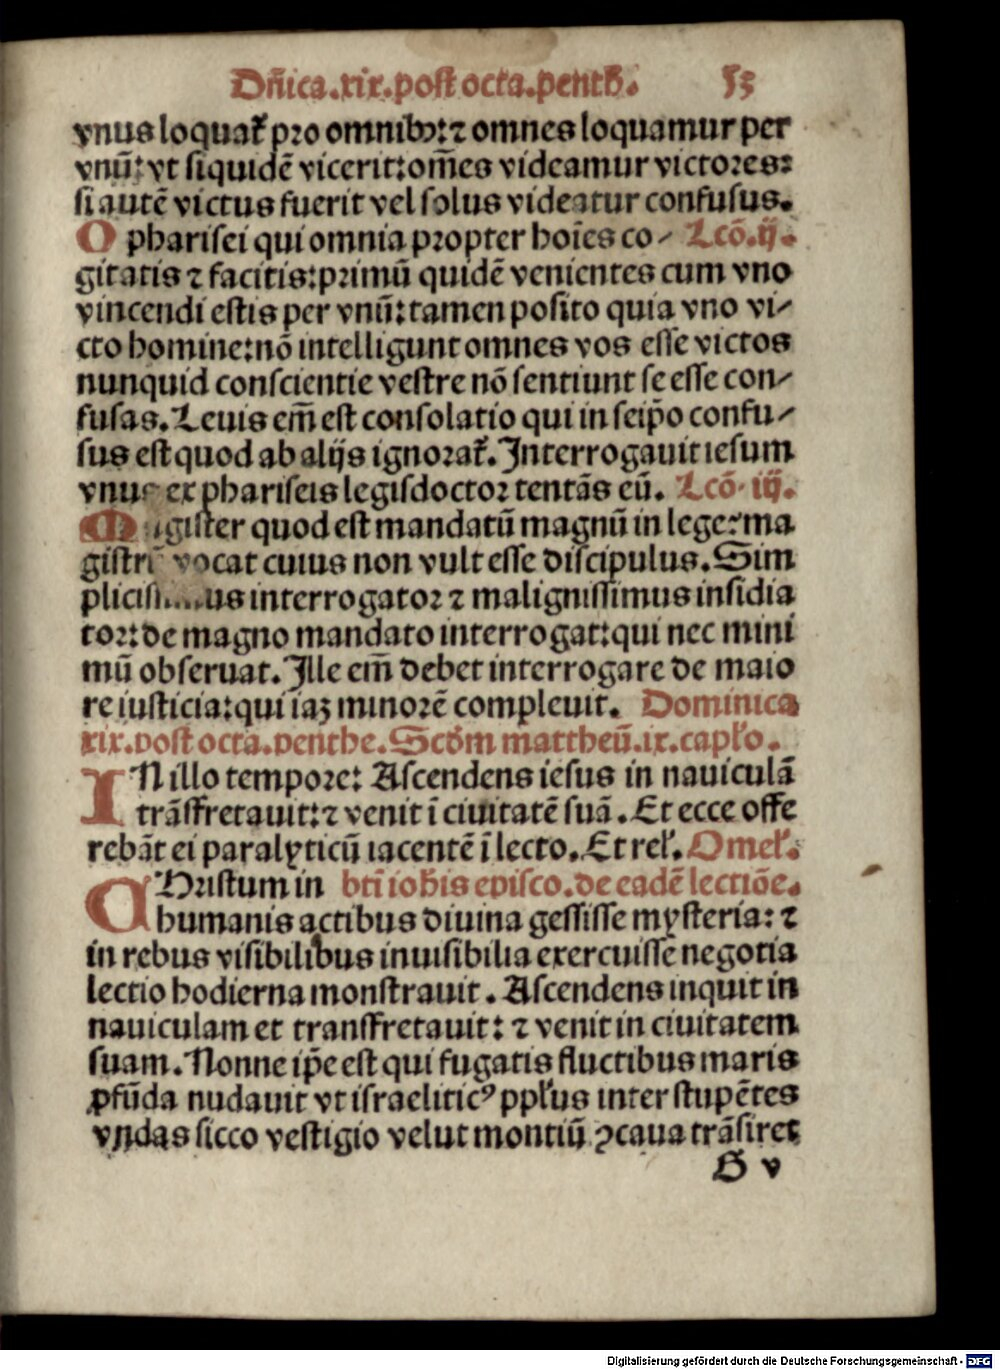 Dñica.xix.post octa.penth. 53
vnus loquat᷑ pro omnibꝰ: ⁊ omnes loquamur per
vnū: vt siquidē vicerit: om̄es videamur victores:
si autē victus fuerit vel solus videatur confusus.
O pharisei qui omnia propter hoīes co⸗ Lcō.ij.
gitatis ⁊ facitis: primū quidē venientes cum vno
vincendi estis per vnū: tamen posito quia vno vi⸗
cto homine: nō intelligunt omnes vos esse victos
nunquid conscientie vestre nō sentiunt se esse con⸗
fusas. Leuis em̄ est consolatio qui in seip̄o confu⸗
sus est quod ab alijs ignorat᷑. Interrogauit iesum
vnus ex phariseis legisdoctor tentās eū. Lcō.iij.
Magister quod est mandatū magnū in lege: ma
gistrū vocat cuius non vult esse discipulus. Sim
plicissimus interrogator ⁊ malignissimus insidia
tor: de magno mandato interrogat: qui nec mini
mū obseruat. Ille em̄ debet interrogare de maio
re iusticia: qui iaꝫ minorē compleuit. Dominica
xix.post octa.penthe. Scd̄m mattheū.ix.capl̄o.
IN illo tempore: Ascendens iesus in nauiculā
trāsfretauit: ⁊ venit ī ciuitatē suā. Et ecce offe
rebāt ei paralyticū iacentē ī lecto. Et rel̄. Omel̄.
CHristum in bt̄i ioh̄is episco. de eadē lectiōe.
humanis actibus diuina gessisse mysteria: ⁊
in rebus visibilibus inuisibilia exercuisse negotia
lectio hodierna monstrauit. Ascendens inquit in
nauiculam et transfretauit: ⁊ venit in ciuitatem
suam. Nonne ip̄e est qui fugatis fluctibus maris
ꝓfūda nudauit vt israeliticꝰ ppl̄us inter stupētes
vndas sicco vestigio velut montiū ꝯcaua trāsiret
G v
Digitalisierung gefördert durch die Deutsche Forschungsgemeinschaft - DFG